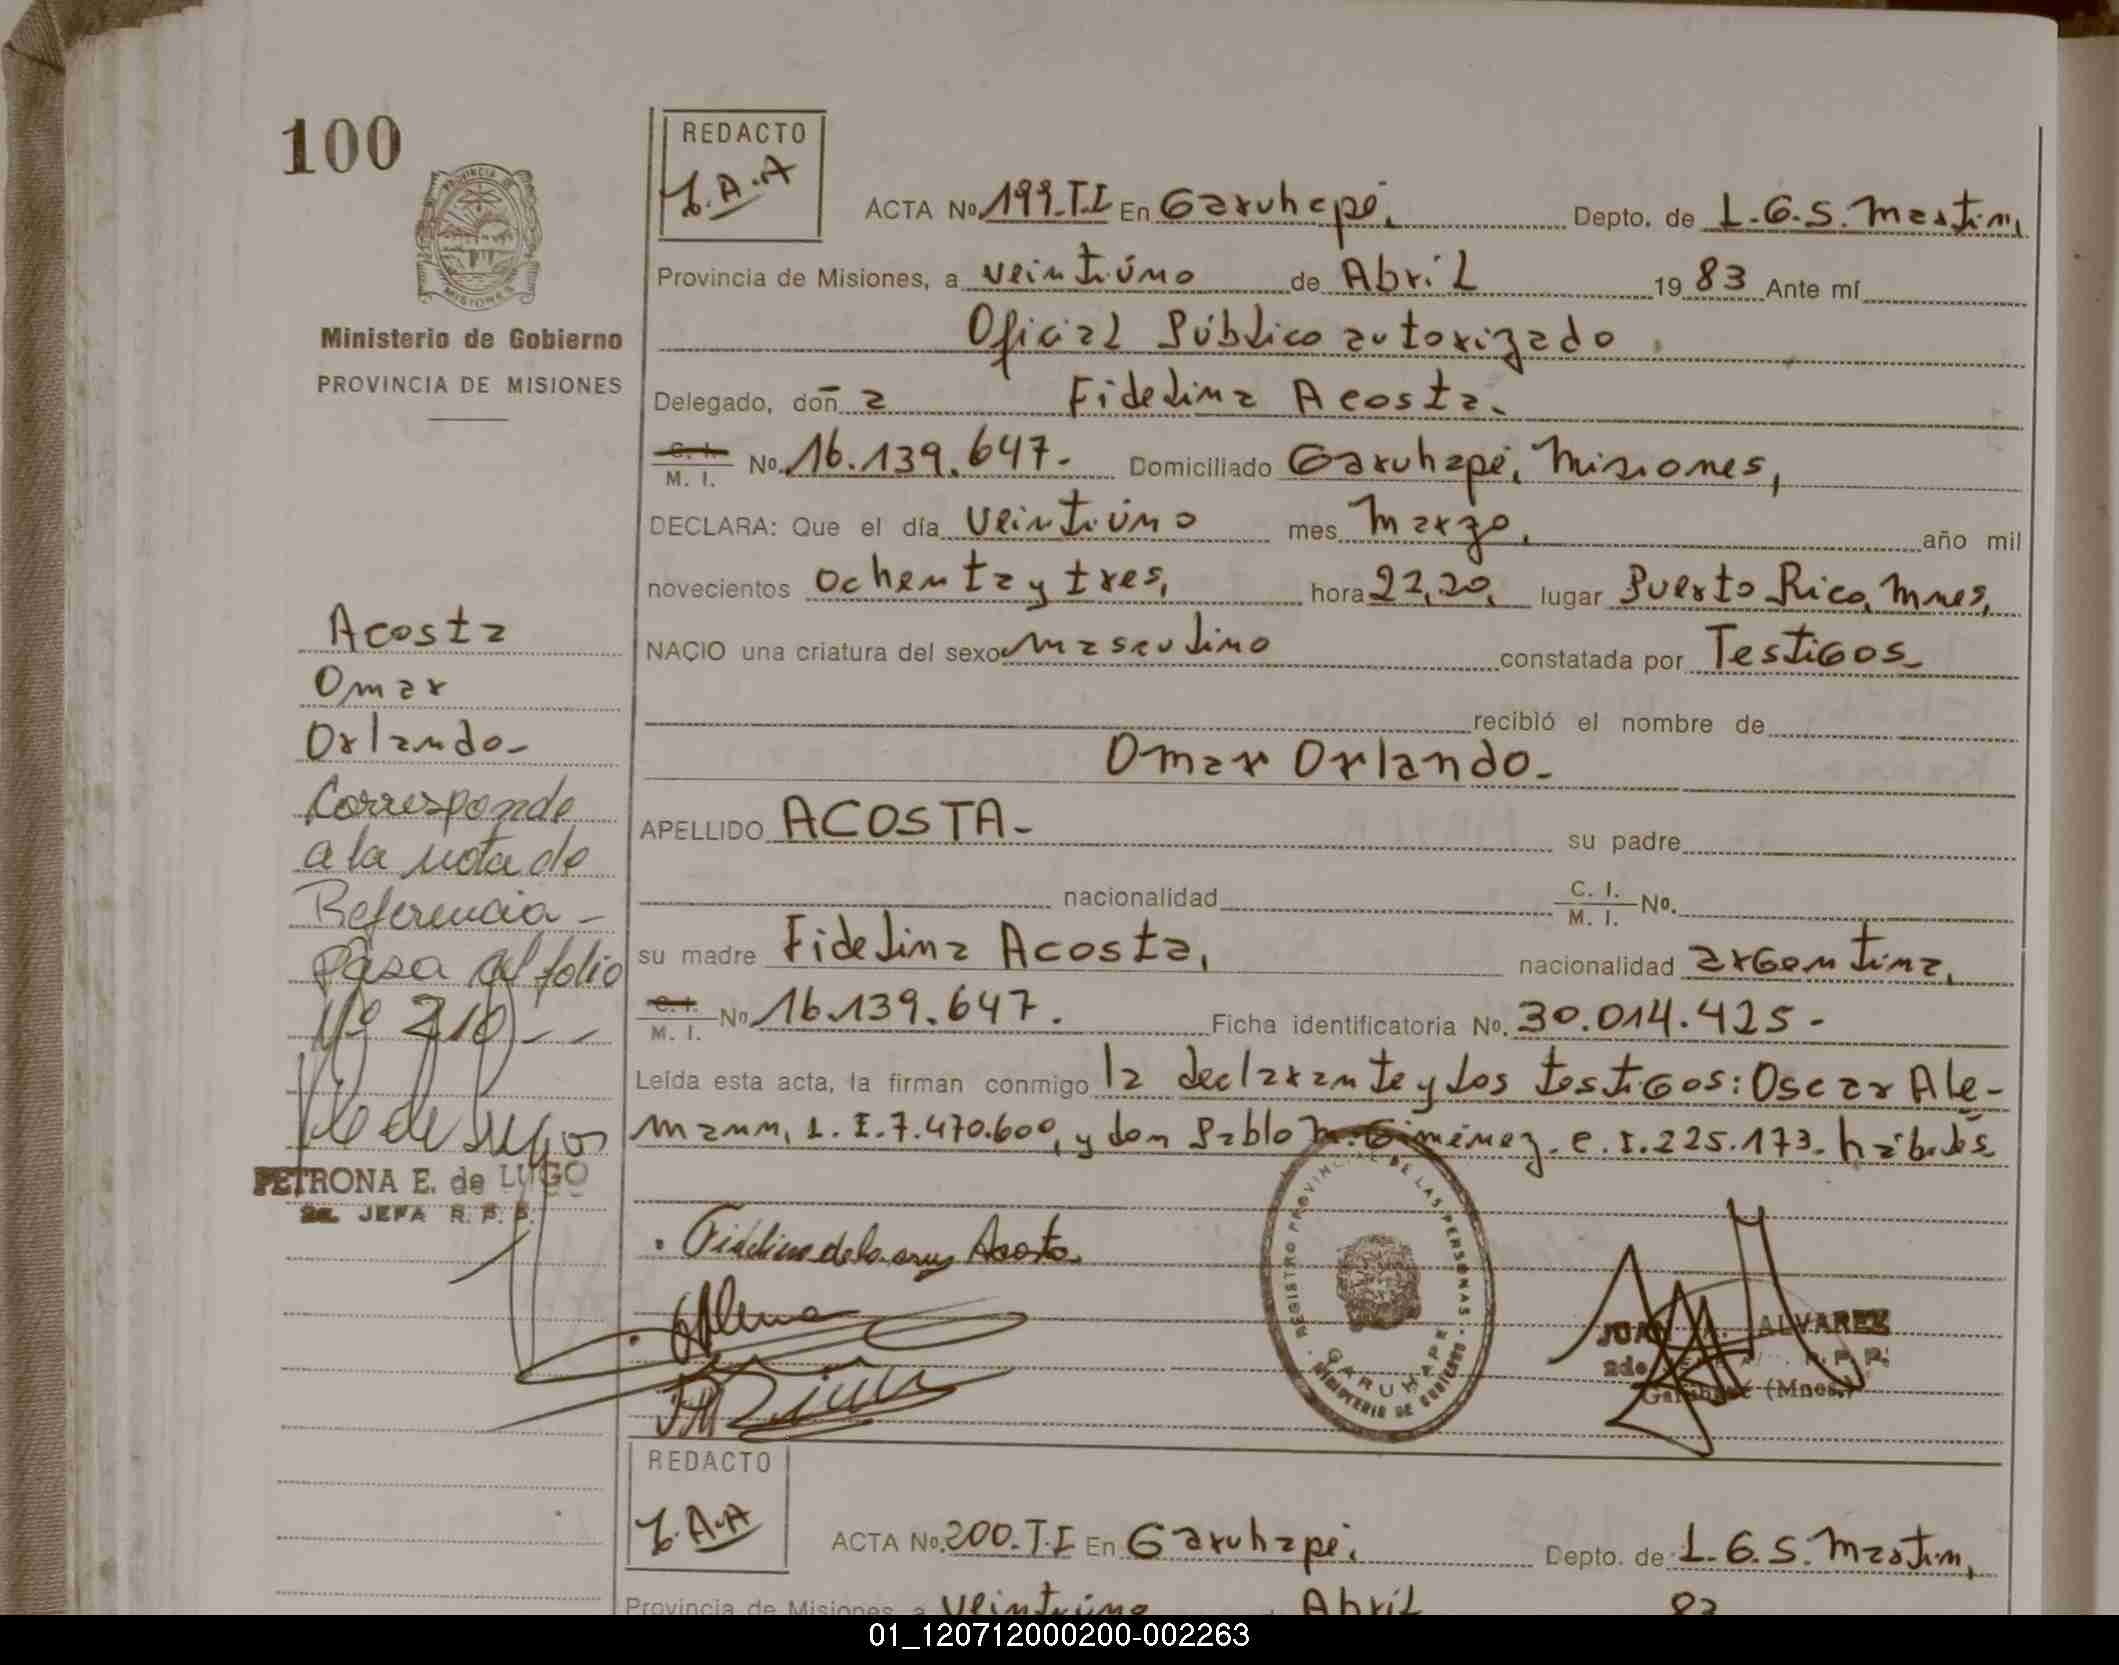 100
REDACTO
ACTA No. 199.T.I En Garuhapé, Depto. de L.G.S. Martin,
Provincia de Misiones, a veintiúno de Abril 1983 Ante mí
Ministerio de Gobierno
PROVINCIA DE MISIONES
Oficial Público autorizado.
Delegado, doñ a Fidelina Acosta.
C. I. M. I. No. 16.139.647.- Domiciliado Garuhapé, Misiones,
DECLARA: Que el día veintiúno mes marzo, año mil
novecientos ochenta y tres, hora 22,20, lugar Puerto Rico, Mnes,
NACIO una criatura del sexo masculino constatada por Testigos.
recibió el nombre de
Omar Orlando.
APELLIDO ACOSTA- su padre
nacionalidad C. I. M. I. No.
su madre Fidelina Acosta, nacionalidad argentina,
C. I. M. I. No 16.139.647. Ficha identificatoria No. 30.014.425-
Leída esta acta, la firman conmigo la declarante y los testigos: Oscar Ale-
mann, L. I. 7.470.600, y don Pablo M. Giménez. C. I. 225.173. hábiles
Acosta
Omar
Orlando-
Corresponde
a la nota de
Referencia-
Pasa al folio
Nº 210--
PETRONA E. de LUGO
JEFA R. P. P.
Fidelina de la cruz Acosta
REGISTRO PROVINCIAL DE LAS PERSONAS
GARUHAPE
MINISTERIO DE GOBIERNO
ALVAREZ
2do
R. P. P.
Garuhapé (Mnes.)
REDACTO
ACTA No. 200.T.I En Garuhapé, Depto. de L.G.S. Martin,
Provincia de Misiones, a veintiúno Abril 83
01_120712000200-002263